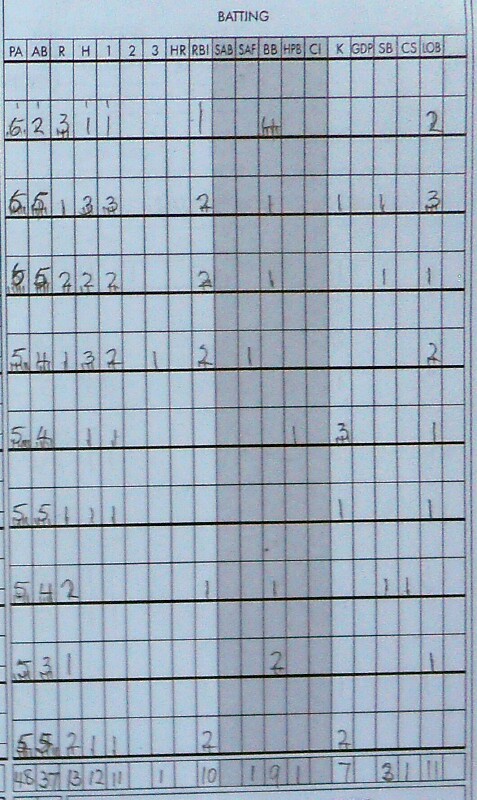 BATTING
PA AB R H 1 2 3 HR RBI SAB SAF BB HPB CI K GDP SB CS LOB
6 2 3 1 1 1 4 2
6 5 1 3 3 2 1 1 1 3
6 5 2 2 2 2 1 1 1
5 4 1 3 2 1 2 1 2
5 4 1 1 1 3 1
5 5 1 1 1 1 1
5 4 2 1 1 1 1
5 3 1 2 1
5 5 2 1 1 2 2
48 37 13 12 11 1 10 1 9 1 7 3 1 11